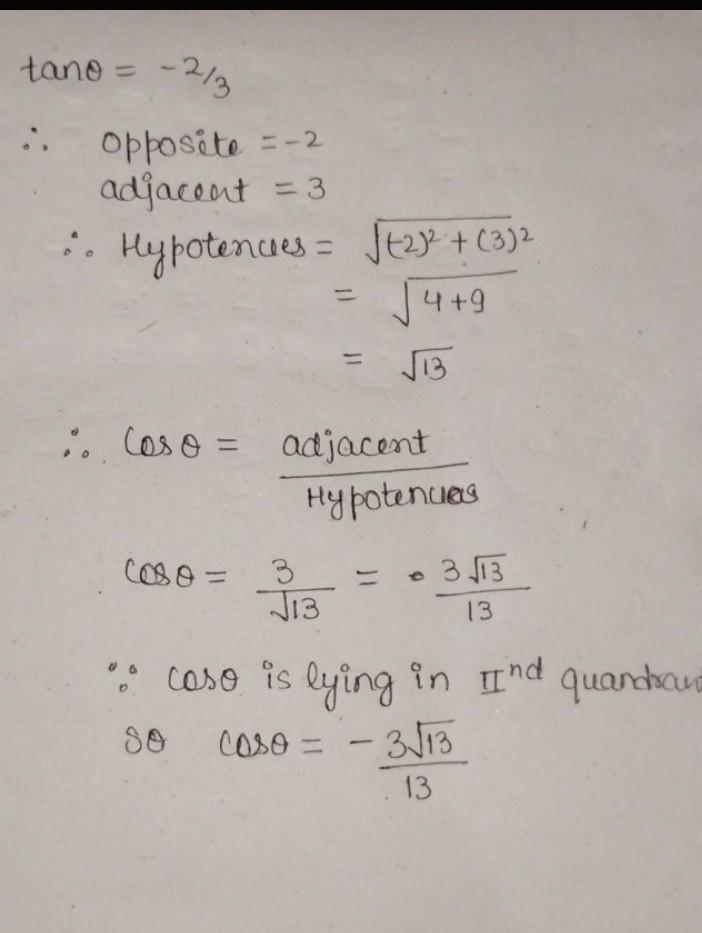 tanθ = -2/3
∴ opposite = -2
adjacent = 3
∴ Hypotenues = √(-2)² + (3)²
= √4+9
= √13
∴ Cosθ = adjacent
Hypotenues
cosθ = 3/√13 = 3√13/13
∵ cosθ is lying in IInd quandran
so cosθ = -3√13/13